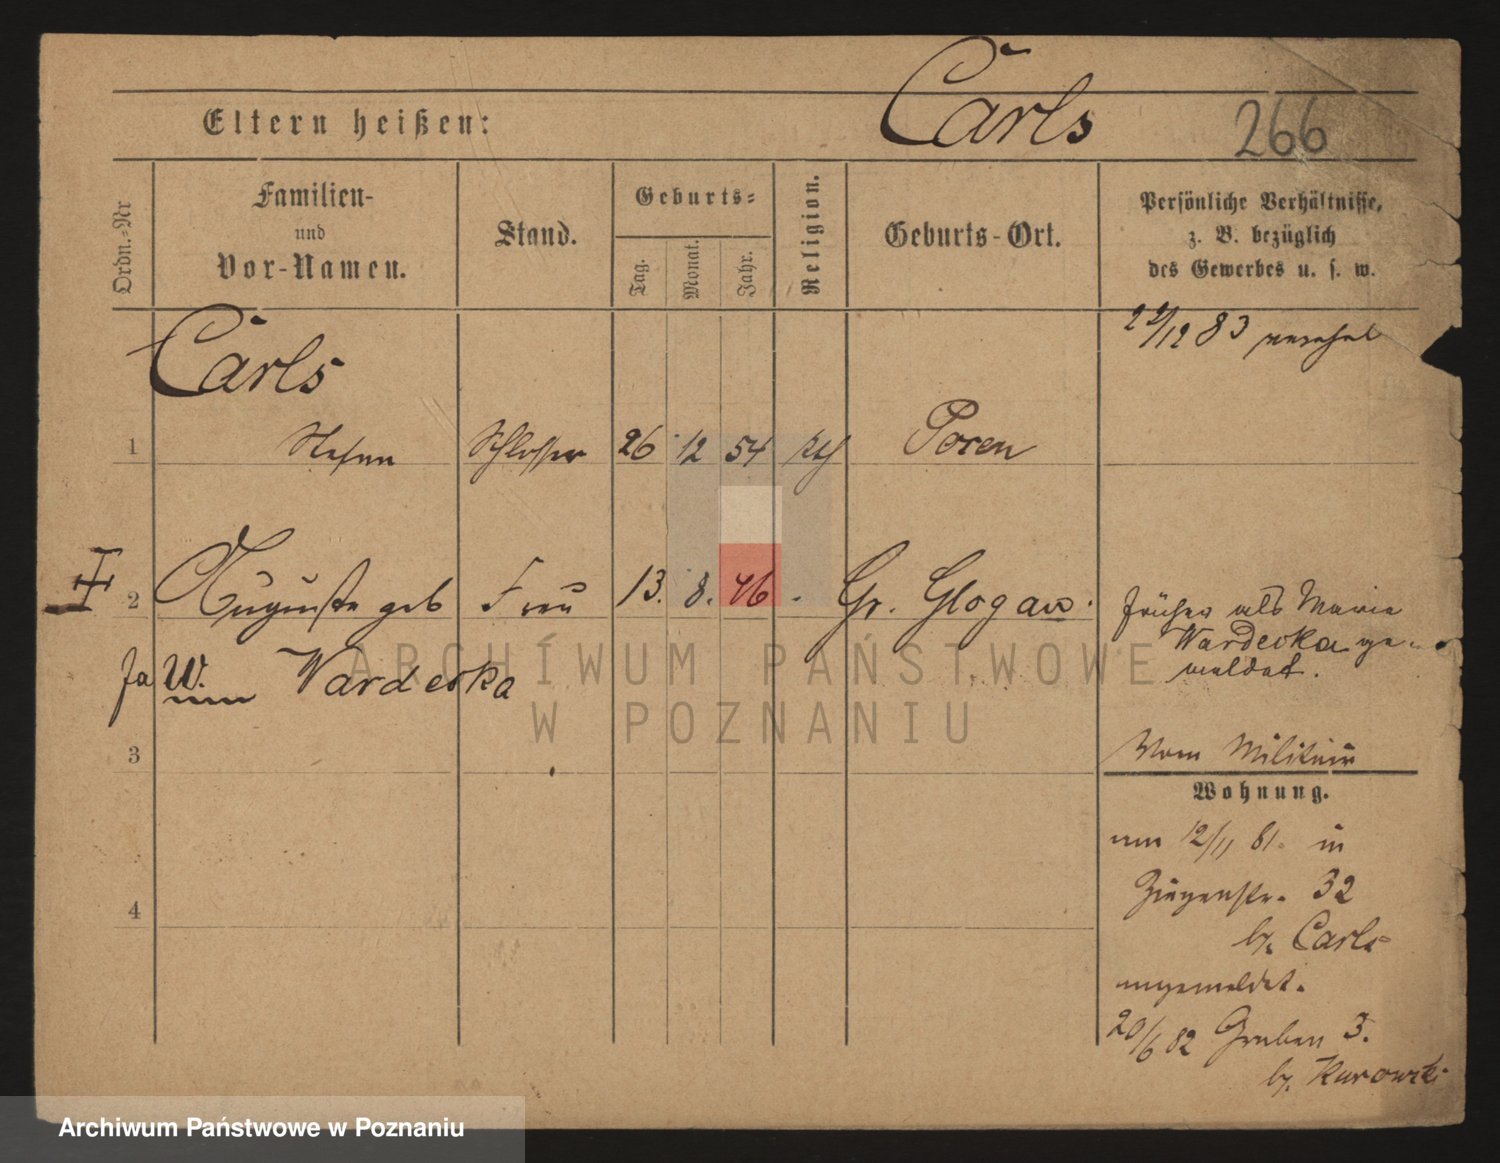 Eltern heißen: Carls 266
Ordn.-Nr
Familien-
und
Vor-Namen.
Stand.
Geburts-
Tag.
Monat.
Jahr.
Religion.
Geburts-Ort.
Persönliche Verhältnisse,
z. B. bezüglich
des Gewerbes u. s. w.
Carls
1 Schlosser 26 12 54 kth Posen
2 Auguste geb Frau 13. 8. 46. Gr. Glogau.
Wardecka
früher als Marie
Wardecka ge-
meldet.
3
Vom Militair
Wohnung.
am 12/11 81. in
Ziegenstr. 32
b. Carls
angemeldet.
4
20/6 82 Graben 3.
b. Kurowski
ARCHIWUM PAŃSTWOWE
W POZNANIU
Archiwum Państwowe w Poznaniu